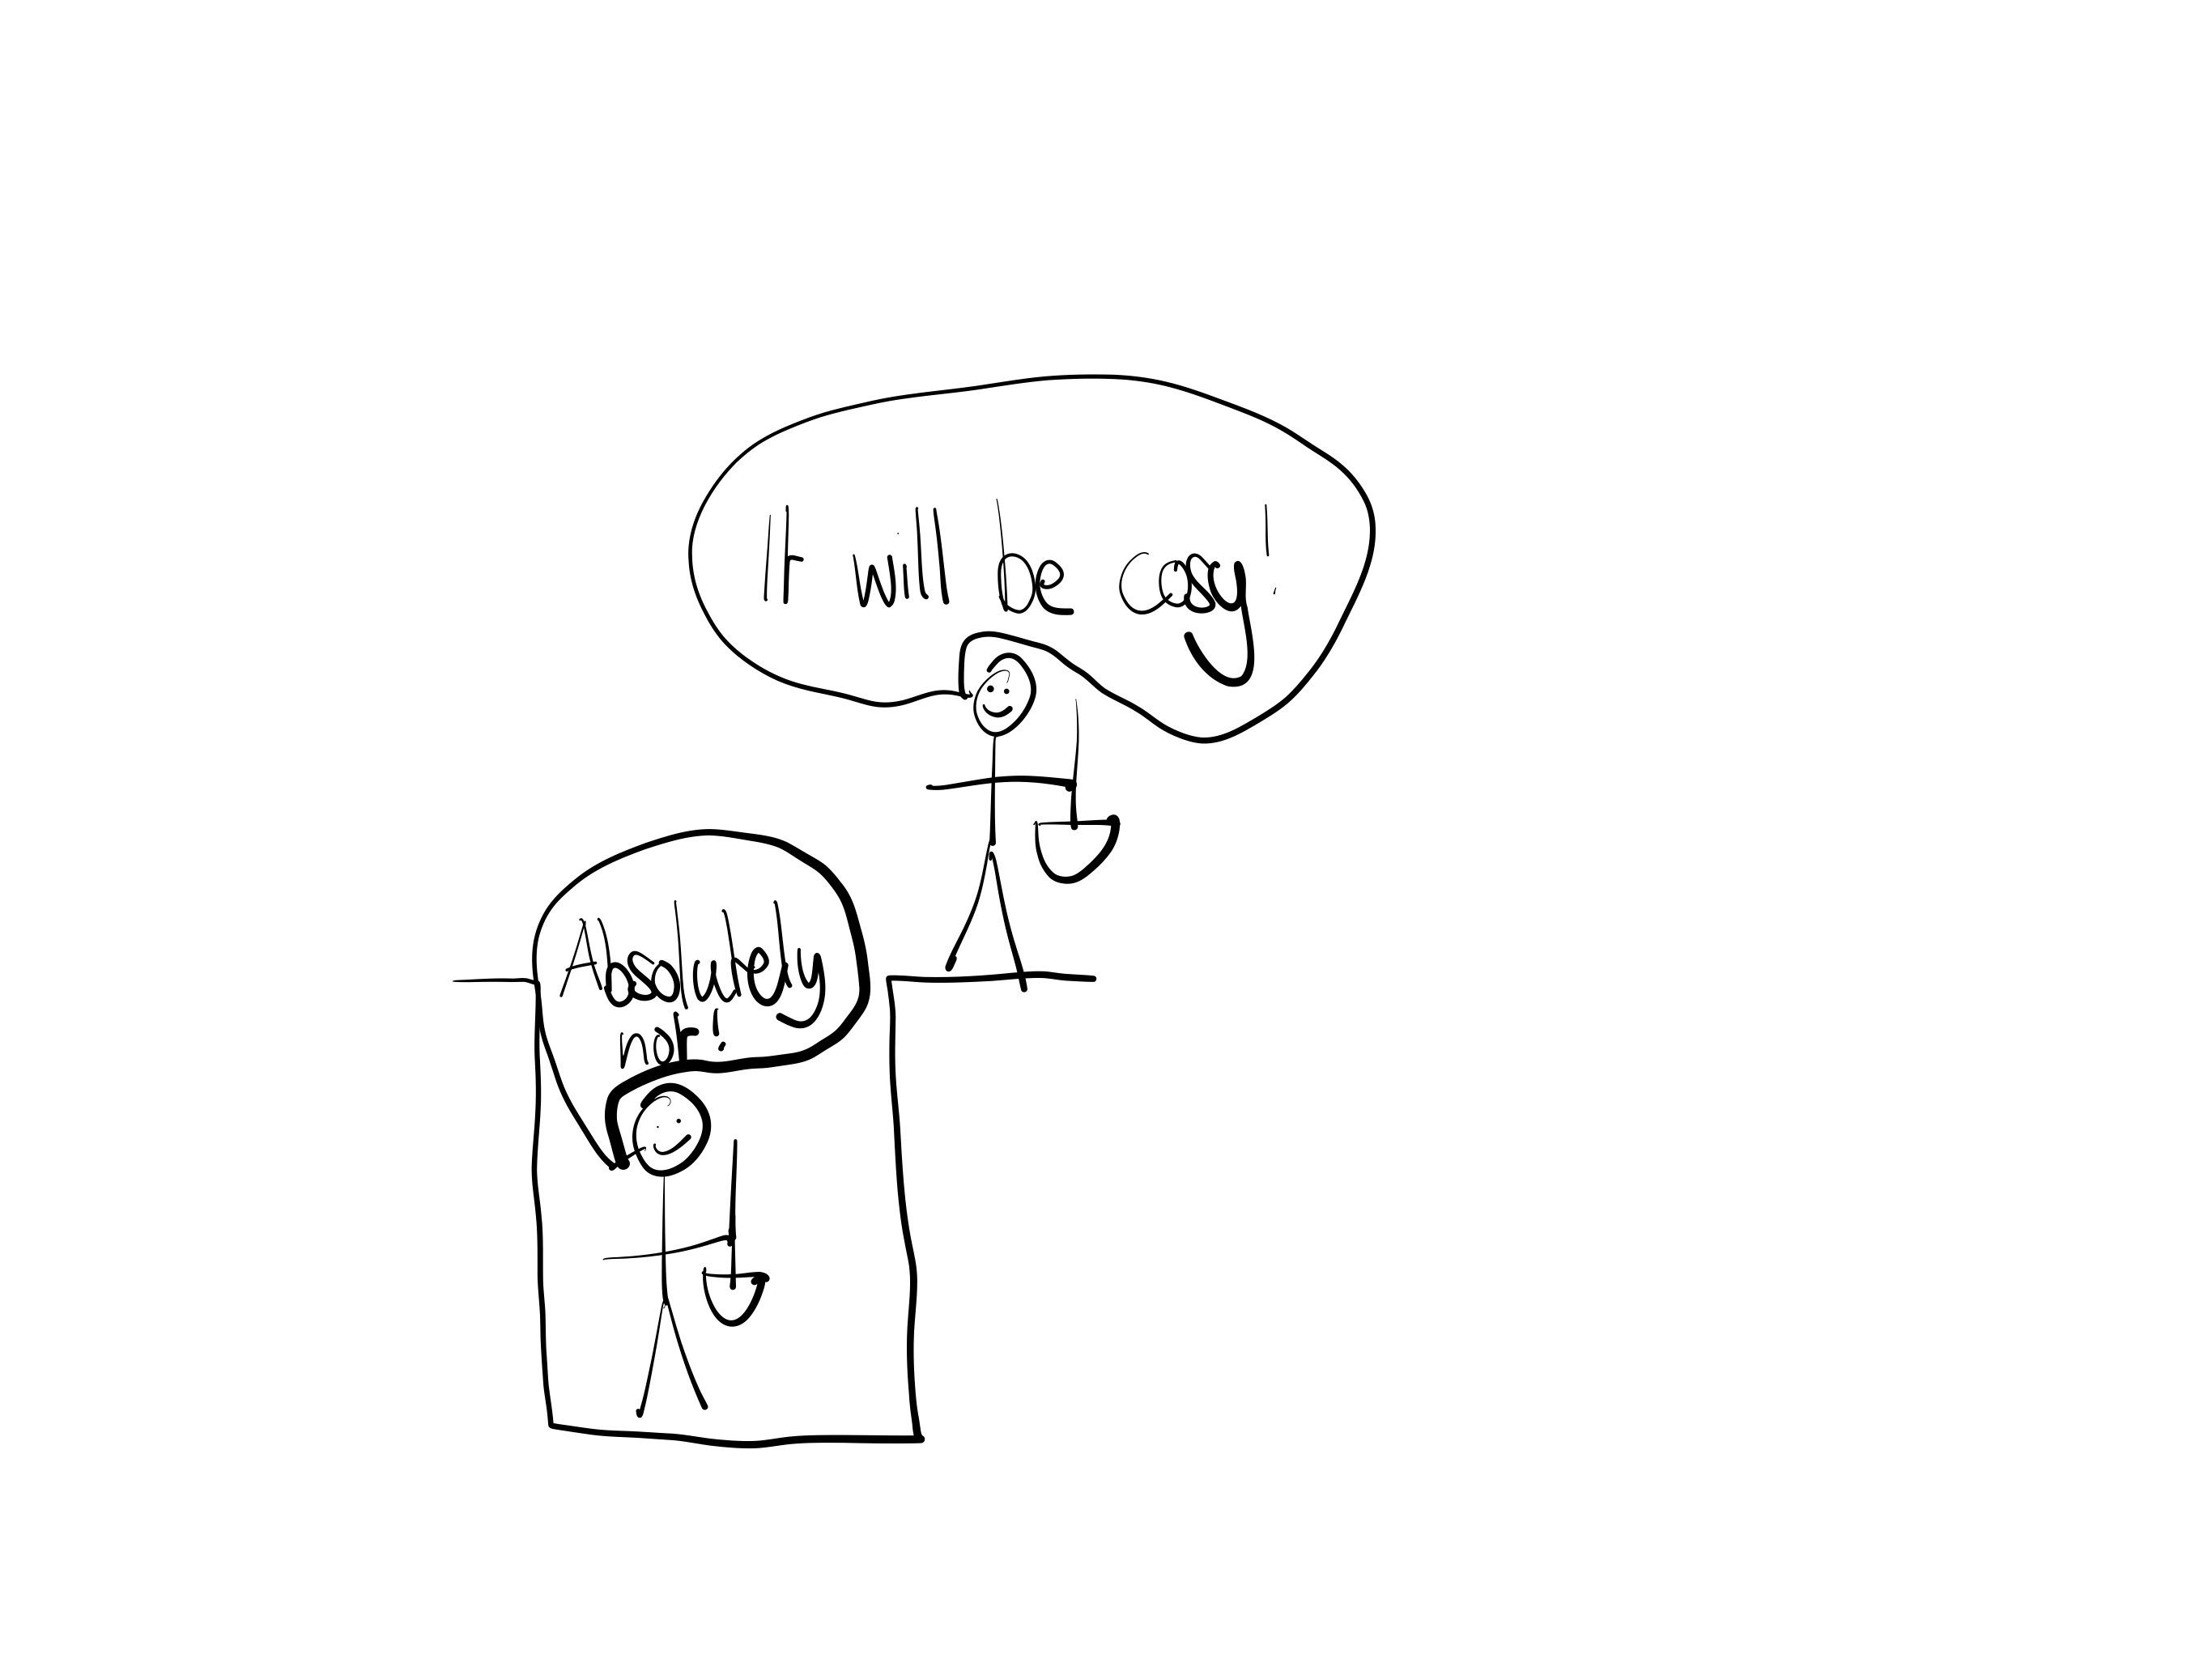 It will be easy!
Absolutely
not!